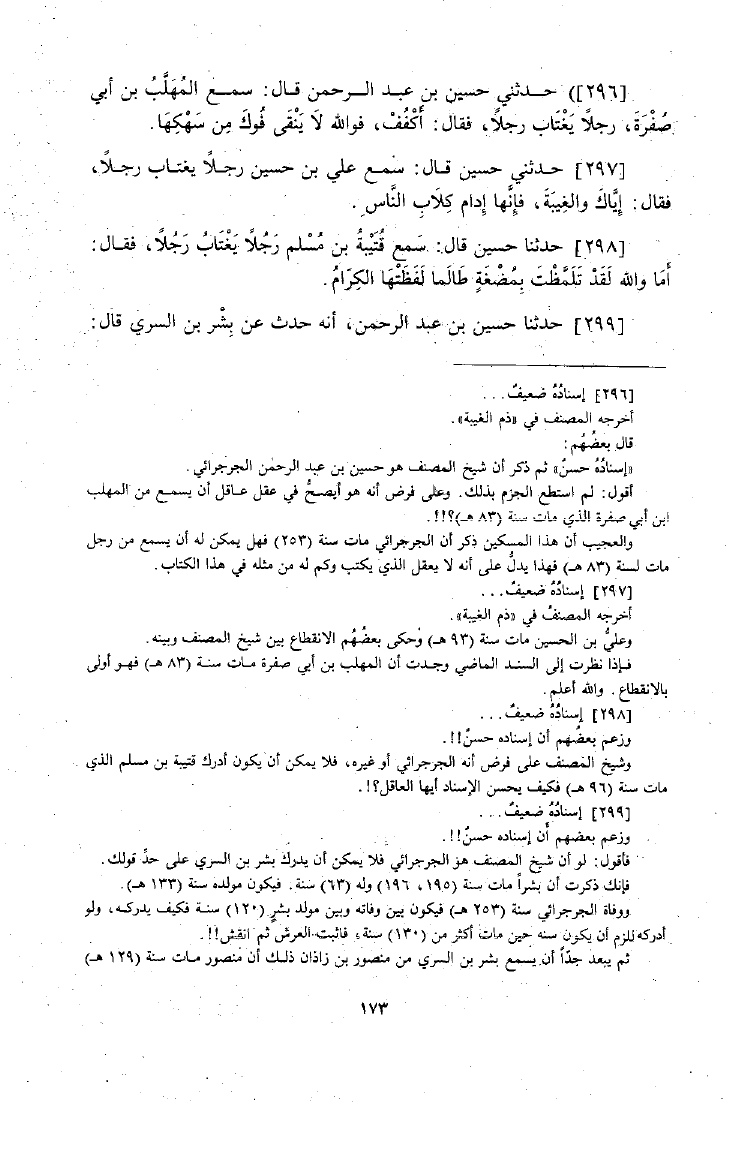 [٢٩٦]) حدثني حسين بن عبد الرحمن قال: سمع المُهَلَّبُ بن أبي
صُفْرَةَ، رجلاً يَغْتَابُ رجلاً، فقال: أُكْفُفْ، فوالله لَا يَنْقَى فُوكَ مِن سَهْكِهَا.
[٢٩٧] حدثني حسين قال: سَمع علي بن حسين رجلاً يغتاب رجلاً،
فقال: إِيَّاكَ والغِيبَةَ، فإنَّها إدام كِلَابِ النَّاسِ.
[٢٩٨] حدثنا حسين قال: سَمع قُتَيْبةُ بن مُسْلم رَجُلاً يَغْتَابُ رَجُلاً، فقال:
أَمَا والله لَقَدْ تَلَمَّظْتَ بِمُضْغَةٍ طَالَما لَفَظَتْهَا الكِرَامُ.
[٢٩٩] حدثنا حسين بن عبد الرحمن، أنه حدث عن بِشْر بن السري قال:
[٢٩٦] إسنادُهُ ضعيفٌ...
أخرجه المصنف في «ذم الغيبة».
قال بعضُهُم:
«إسنادُهُ حسنٌ» ثم ذكر أن شيخ المصنف هو حسين بن عبد الرحمن الجرجرائي.
أقول: لم استطع الجزم بذلك. وعلى فرض أنه هو أيصحُّ في عقل عاقل أن يسمع من المهلب
ابن أبي صفرة الذي مات سنة (٨٣ هـ)؟!!.
والعجيب أن هذا المسكين ذكر أن الجرجرائي مات سنة (٢٥٣) فهل يمكن له أن يسمع من رجل
مات لسنة (٨٣ هـ) فهذا يدلُّ على أنه لا يعقل الذي يكتب وكم له من مثله في هذا الكتاب.
[٢٩٧] إسنادُهُ ضعيفٌ...
أخرجه المصنفُ في «ذم الغيبة».
وعليُّ بن الحسين مات سنة (٩٣ هـ) وحكى بعضُهُم الانقطاع بين شيخ المصنف وبينه.
فإذا نظرت إلى السند الماضي وجدت أن المهلب بن أبي صفرة مات سنة (٨٣ هـ) فهو أولى
بالانقطاع. والله أعلم.
[٢٩٨] إسنادُهُ ضعيفٌ...
وزعم بعضُهم أن إسناده حسنٌ!!.
وشيخ المصنف على فرض أنه الجرجرائي أو غيره، فلا يمكن أن يكون أدرك قتيبة بن مسلم الذي
مات سنة (٩٦ هـ) فكيف يحسن الإسناد أيها العاقل؟!.
[٢٩٩] إسنادُهُ ضعيفٌ...
وزعم بعضهم أن إسناده حسنٌ!!.
فأقول: لو أن شيخ المصنف هو الجرجرائي فلا يمكن أن يدرك بشر بن السري على حدِّ قولك.
فإنك ذكرت أن بشراً مات سنة (١٩٥، ١٩٦) وله (٦٣) سنة. فيكون مولده سنة (١٣٣ هـ).
ووفاة الجرجرائي سنة (٢٥٣ هـ) فيكون بين وفاته وبين مولد بشرٍ (١٢٠) سنة فكيف يدركه، ولو
أدركه للزم أن يكون سنه حين مات أكثر من (١٣٠) سنة، فاثبت العرش ثم انقش!!.
ثم يبعد جدّاً أن يسمع بشر بن السري من منصور بن زاذان ذلك أن منصور مات سنة (١٢٩ هـ)
١٧٣